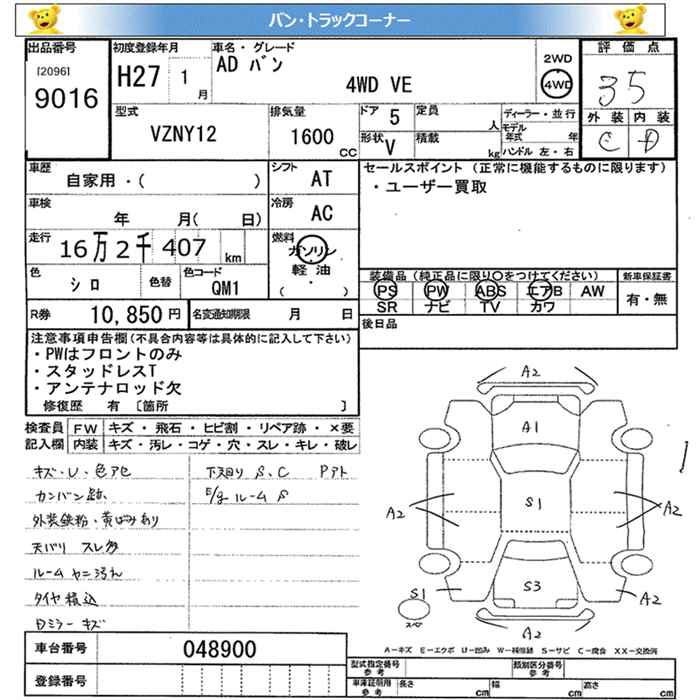 バン・トラックコーナー
出品番号 [2096] 9016
初度登録年月 H27 1月
車名・グレード AD バン 4WD VE
2WD 4WD
評価点 35
外装 内装
C D
型式 VZNY12
排気量 1600 CC
ドア 5 定員 人
形状 V 積載 kg
ディーラー・並行
モデル年式 年
ハンドル 左・右
車歴 自家用・( )
シフト AT
セールスポイント (正常に機能するものに限ります)
・ユーザー買取
車検 年 月( 日)
冷房 AC
走行 16万2千407 km
燃料 ガソリン 軽油 ( )
色 シロ 色替 色コード QM1
装備品 (純正品に限り○をつけてください) 新車保証書
PS PW ABS エアB AW 有・無
SR ナビ TV カワ
R券 10,850円 名変通知期限 月 日
後日品
注意事項申告欄(不具合内容等は具体的に記入して下さい)
・PWはフロントのみ
・スタッドレスT
・アンテナロッド欠
修復歴 有 [箇所 ]
検査員記入欄
FW キズ・飛石・ヒビ割・リペア跡・×要
内装 キズ・汚レ・コゲ・穴・スレ・キレ・破レ
キズ・U・色アセ
カンバン跡
外装鉄粉・黄ばみあり
天バリ スレ多
ルーム ヤニ汚れ
タイヤ積込
Dミラー キズ
下廻り S、C Pアト
E/gルーム S
A2
A1
S1
A2 A2
S3
S1 A2
スペア
A2
A-キズ E-エクボ U-凹み W-補修跡 S-サビ C-腐食 XX-交換済
車台番号 048900
登録番号
型式指定番号 参考 類別区分番号 参考
車庫証明用 参考 長さ cm 幅 cm 高さ cm